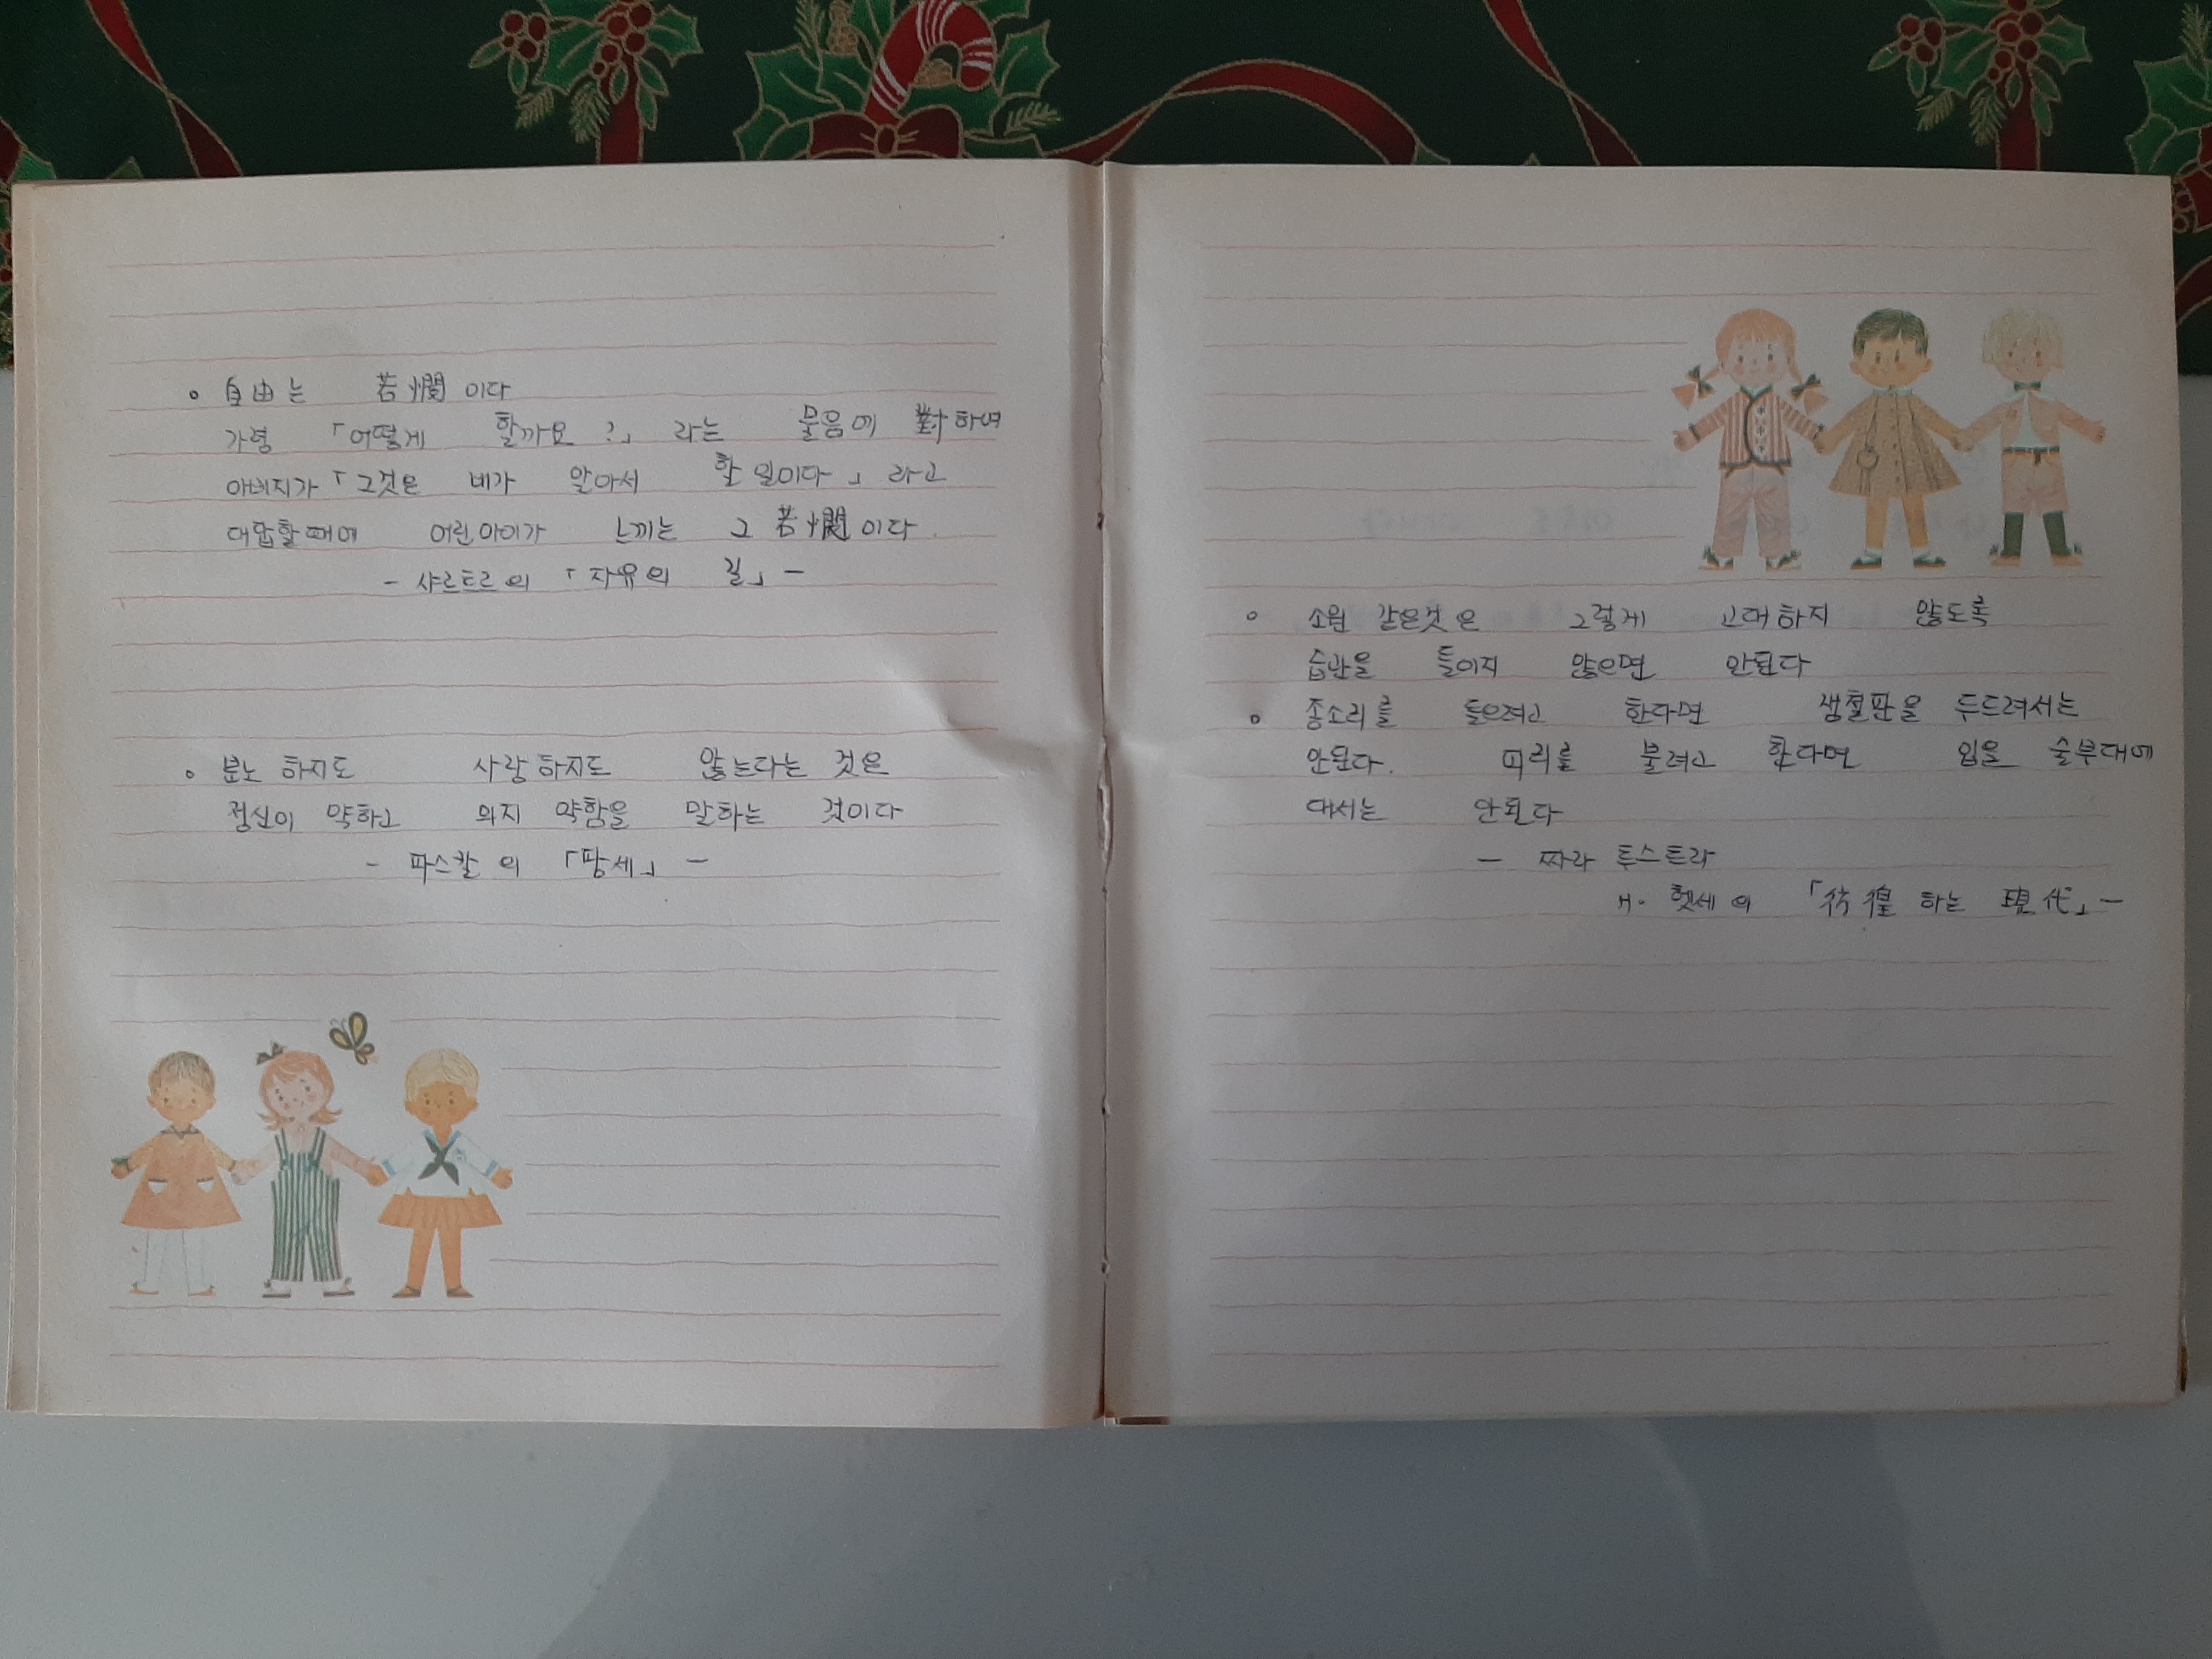 。自由는 苦憫이다
가령 「어떻게 할까요?」 라는 물음에 對하여
아버지가 「그것은 네가 알아서 할 일이다」 라고
대답할때에 어린아이가 느끼는 그 苦憫이다.
- 샤르트르의 「자유의 길」 -
。분노 하지도 사랑하지도 않는다는 것은
정신이 약하고 의지 약함을 말하는 것이다
- 파스칼의 「팡세」 -
。소원 같은것은 그렇게 고대하지 않도록
습관을 들이지 않으면 안된다
。종소리를 들으려고 한다면 생철판을 두드려서는
안된다. 피리를 불려고 한다면 입을 술부대에
대서는 안된다
- 짜라투스트라
H. 헷세의 「彷徨하는 現代」 -